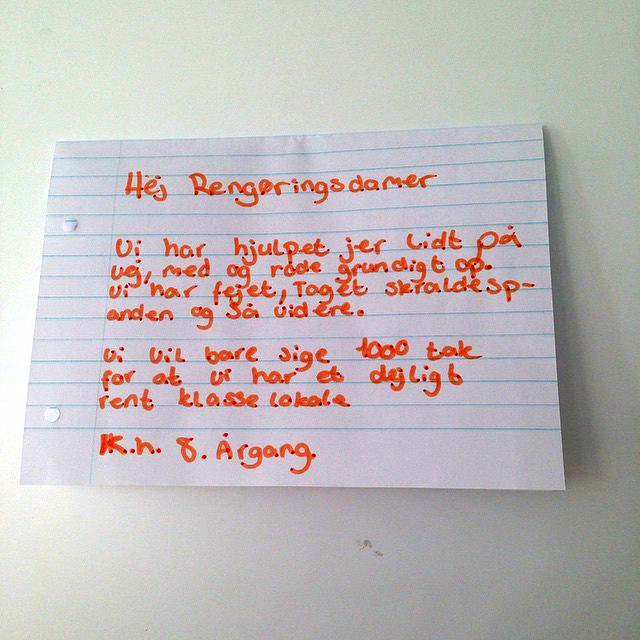 Hej Rengøringsdamer
Vi har hjulpet jer lidt på
vej, med og røde grundigt op.
Vi har fejet, Taget skraldesp-
anden og så videre.
Vi vil bare sige 1000 tak
for at vi har et dejligt
rent klasselokale
K.h. 8. Årgang.